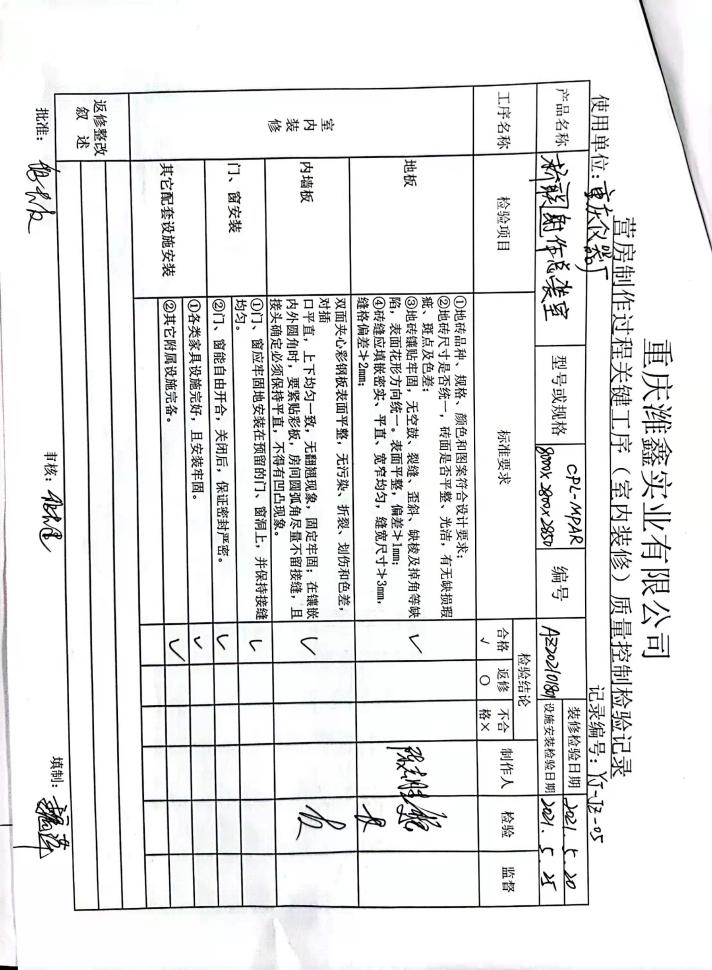 重庆潍鑫实业有限公司
营房制作过程关键工序（室内装修）质量控制检验记录
使用单位：重庆仪器厂 记录编号：YJ-JZ-05
产品名称 型号或规格 CPL-MPAR 8000x2800x2850 编号 装修检验日期 2021.5.20
设施安装检验日期 2021.5.25
工序名称 检验项目 标准要求 检验结论 制作人 检验 监督
合格√ 返修○ 不合格×
室内装修
地板
①地砖品种、规格、颜色和图案符合设计要求；
②地砖尺寸是否统一，砖面是否平整、光洁，有无缺损瑕
疵、斑点及色差；
③地砖镶贴牢固，无空鼓、裂缝、歪斜、缺棱及掉角等缺
陷，表面花形方向统一。表面平整，偏差≯1mm；
④砖缝应填嵌密实、平直、宽窄均匀，缝宽尺寸≯3mm，
缝格偏差≯2mm；
√
内墙板
双面夹心彩钢板表面平整，无污染、折裂、划伤和色差，
对插
口平直，上下均匀一致，无翻翘现象，固定牢固；在镶嵌
内外圆角时，要紧贴彩板，房间圆弧角尽量不留接缝，且
接头确定必须保持平直，不得有凹凸现象。
√
门、窗安装
①门、窗应牢固地安装在预留的门、窗洞上，并保持接缝
均匀。
√
②门、窗能自由开合，关闭后，保证密封严密。
√
其它配套设施安装
①各类家具设施完好，且安装牢固。
√
②其它附属设施完备。
√
返修整改
叙 述
批准： 审核： 填制：